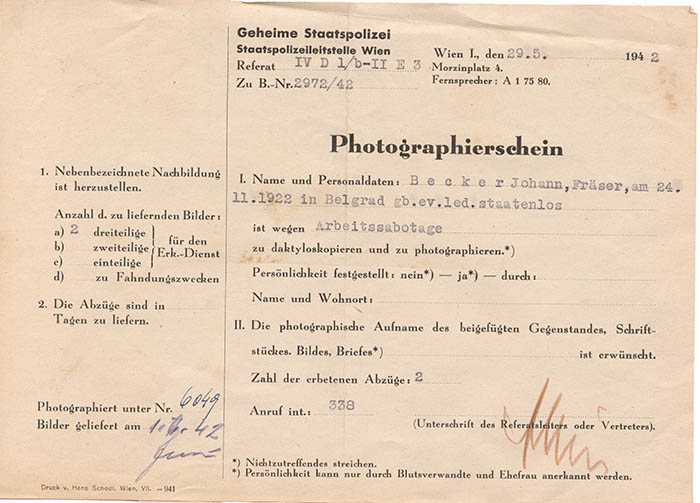 Geheime Staatspolizei
Staatspolizeileitstelle Wien
Referat IV D 1/b-II E 3
Zu B.-Nr. 2972/42
Wien I., den 29.5. 1942
Morzinplatz 4.
Fernsprecher: A 1 75 80.
Photographierschein
1. Nebenbezeichnete Nachbildung
ist herzustellen.
Anzahl d. zu liefernden Bilder:
a) 2 dreiteilige
b) zweiteilige
c) einteilige
für den
Erk.-Dienst
d) zu Fahndungszwecken
2. Die Abzüge sind in
Tagen zu liefern.
Photographiert unter Nr. 6049
Bilder geliefert am 42
I. Name und Personaldaten: Becker Johann, Fräser, am 24.
11.1922 in Belgrad gb.ev.led.staatenlos
ist wegen Arbeitssabotage
zu daktyloskopieren und zu photographieren.*)
Persönlichkeit festgestellt: nein*) — ja*) — durch:
Name und Wohnort:
II. Die photographische Aufname des beigefügten Gegenstandes, Schrift-
stückes. Bildes, Briefes*) ist erwünscht.
Zahl der erbetenen Abzüge: 2
Anruf int.: 338
(Unterschrift des Referatsleiters oder Vertreters).
*) Nichtzutreffendes streichen.
*) Persönlichkeit kann nur durch Blutsverwandte und Ehefrau anerkannt werden.
Druck v. Hans Schodl, Wien, VII. —941